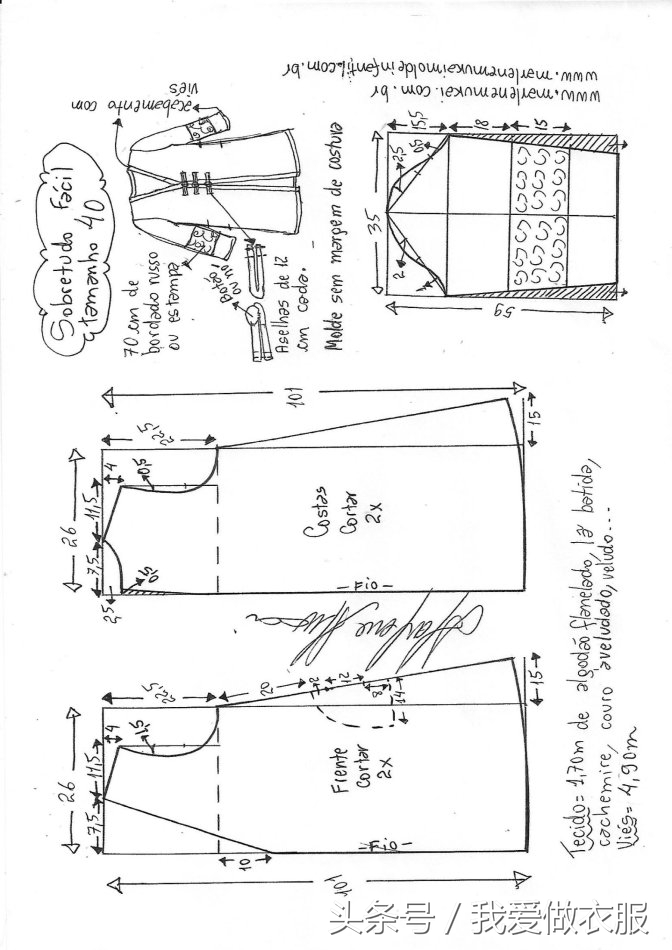 Sobretudo Fácil
tamanho 40
acabamento com
viés
70 cm de
bordado russo
ou estampa
Botão
ou nó
Aselhas de 12
cm cada.
Molde sem margem de costura
www.marlenemukai.com.br
www.marlenemukaimoldeinfantil.com.br
35
15,5
18
15
2,5
0,5
2
1
59
101
22,5
26
7,5
11,5
4
0,5
2,5
0,5
15
Costas
Cortar
2x
Fio
22,5
26
7,5
11,5
4
1,5
20
2
12
8
14
15
10
Frente
Cortar
2x
Fio
101
Tecido = 1,70m de algodão flanelado, lã batida,
cachemire, couro aveludado, veludo...
Viés = 4,90m
头条号 / 我爱做衣服